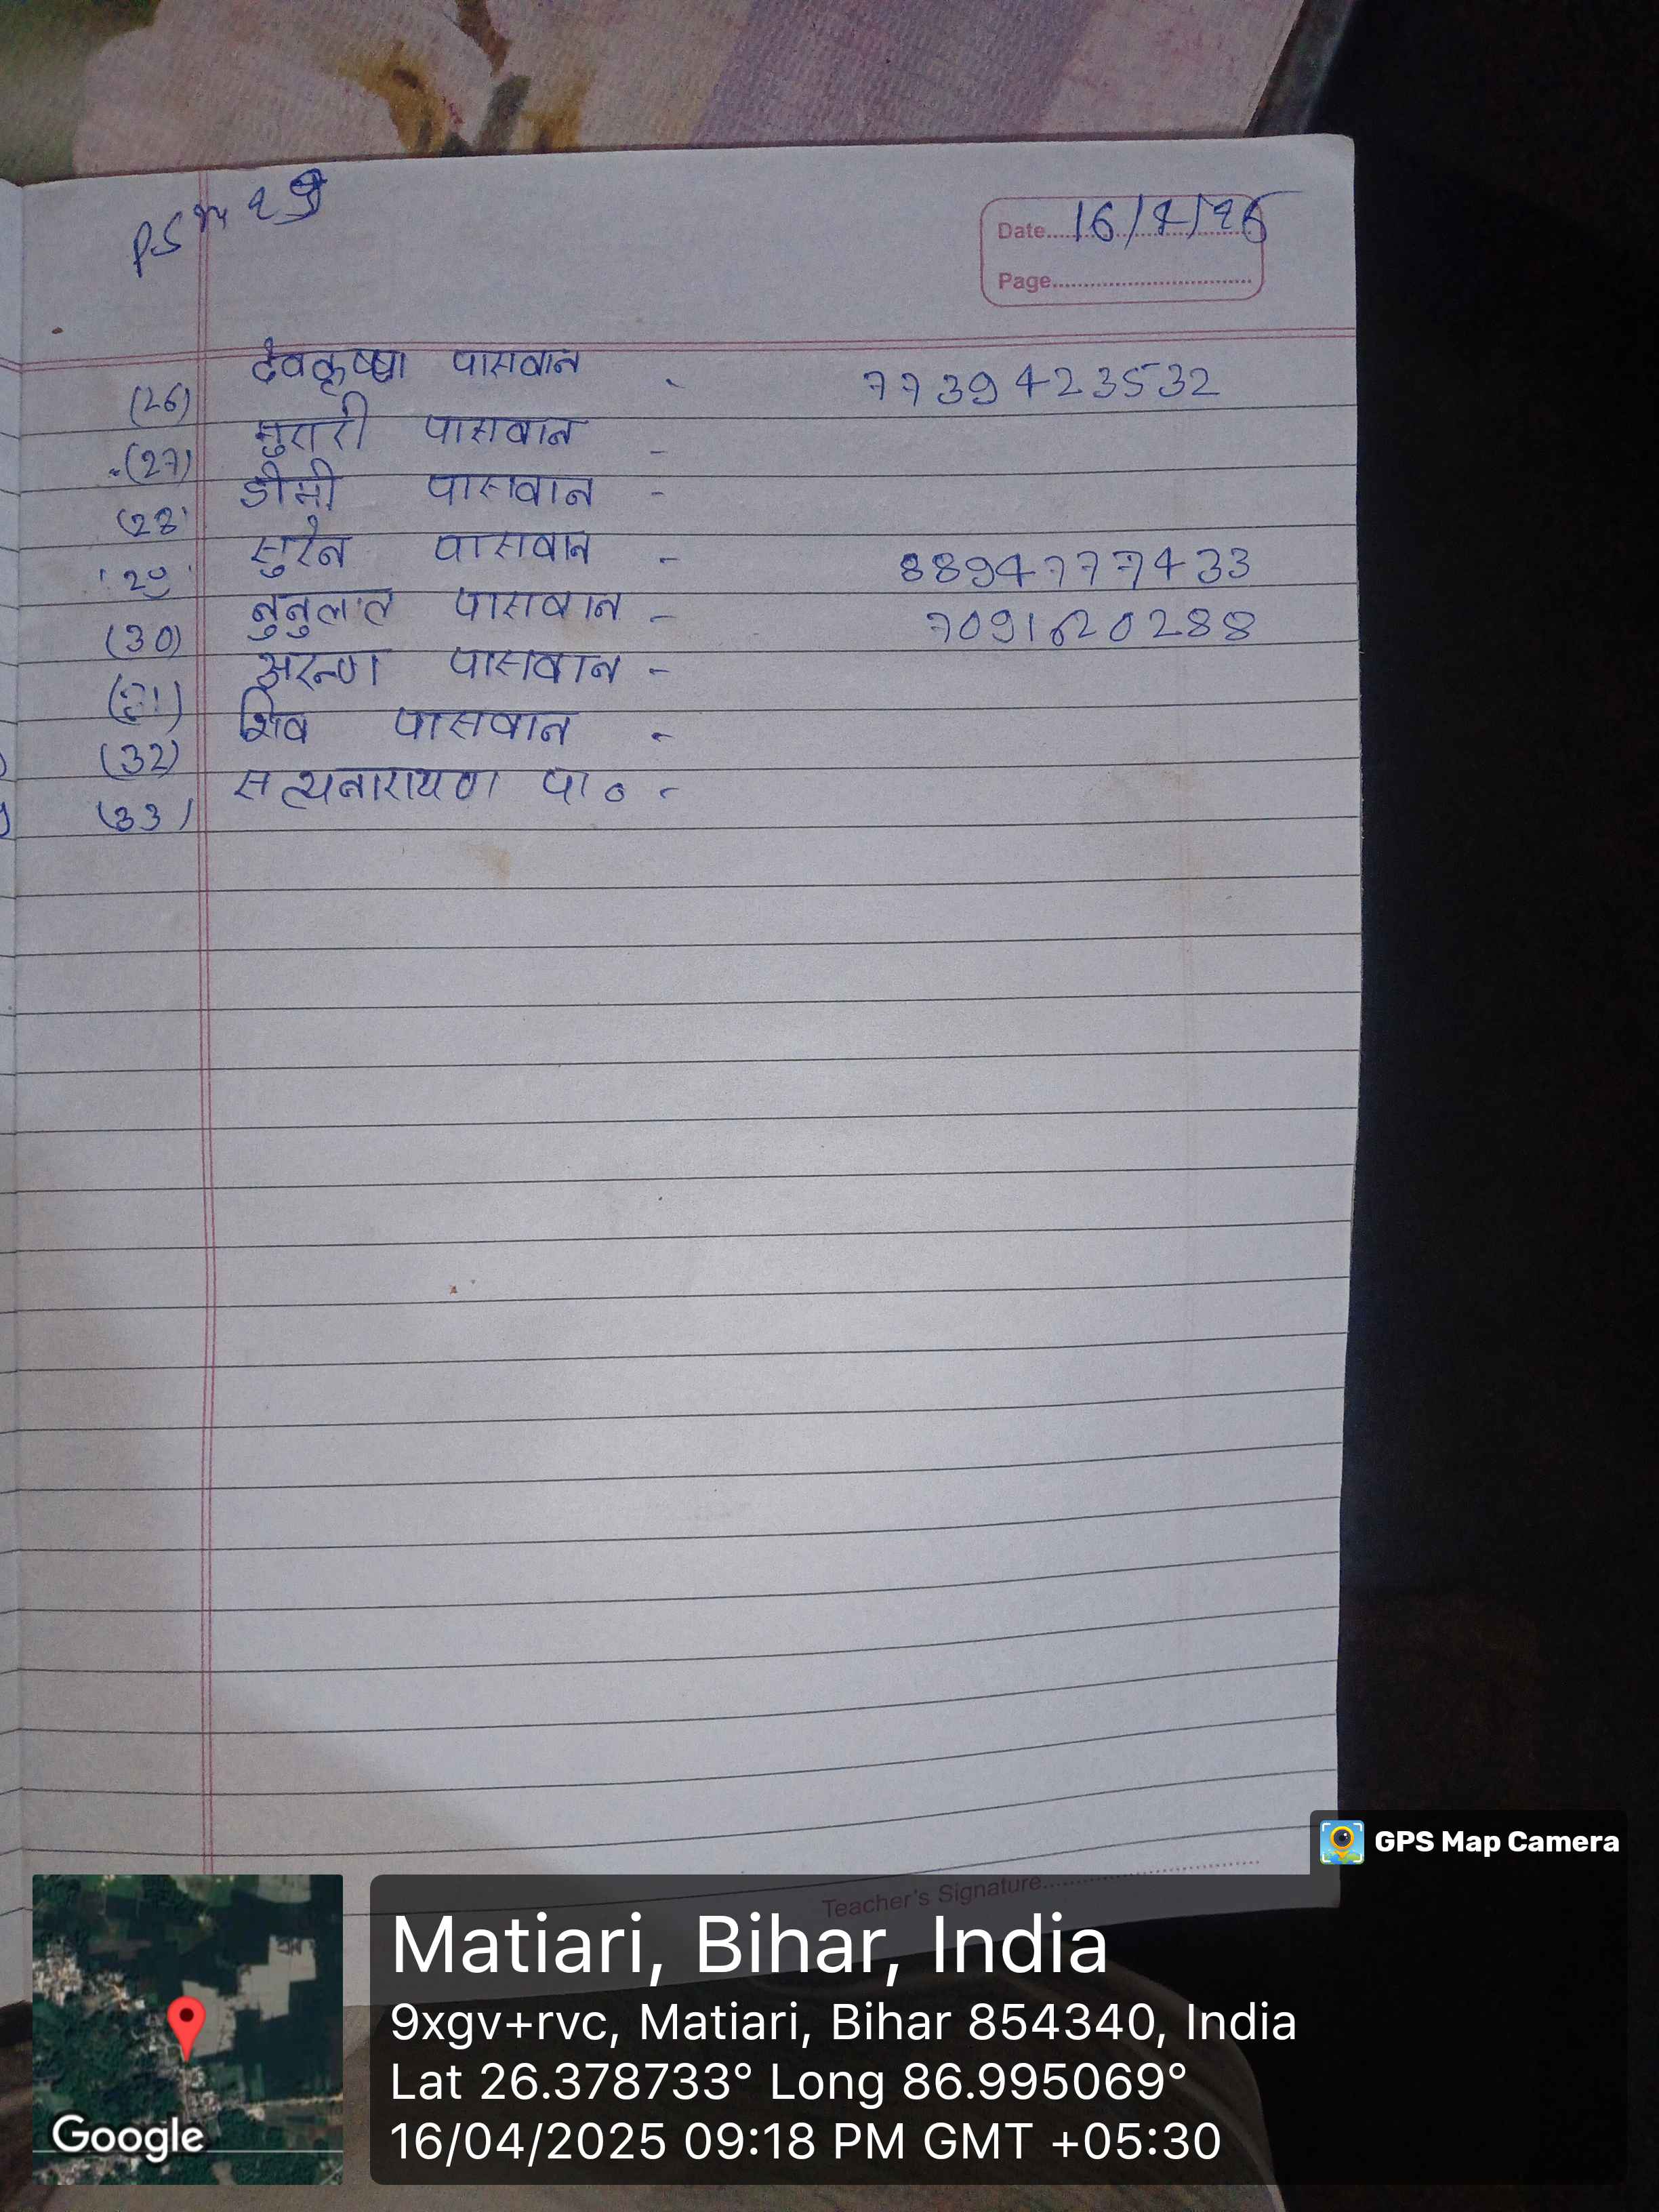 Date 16/4/25
Page
(26) देवकृष्णा पासवान - 7739423532
(27) मुरारी पासवान -
(28) डोमी पासवान -
(29) सुरेन पासवान - 8894777433
(30) नुनुलाल पासवान - 7091620288
(31) अरुण पासवान -
(32) शिव पासवान -
(33) सत्यनारायण पा० -
Teacher's Signature
GPS Map Camera
Matiari, Bihar, India
9xgv+rvc, Matiari, Bihar 854340, India
Lat 26.378733° Long 86.995069°
16/04/2025 09:18 PM GMT +05:30
Google